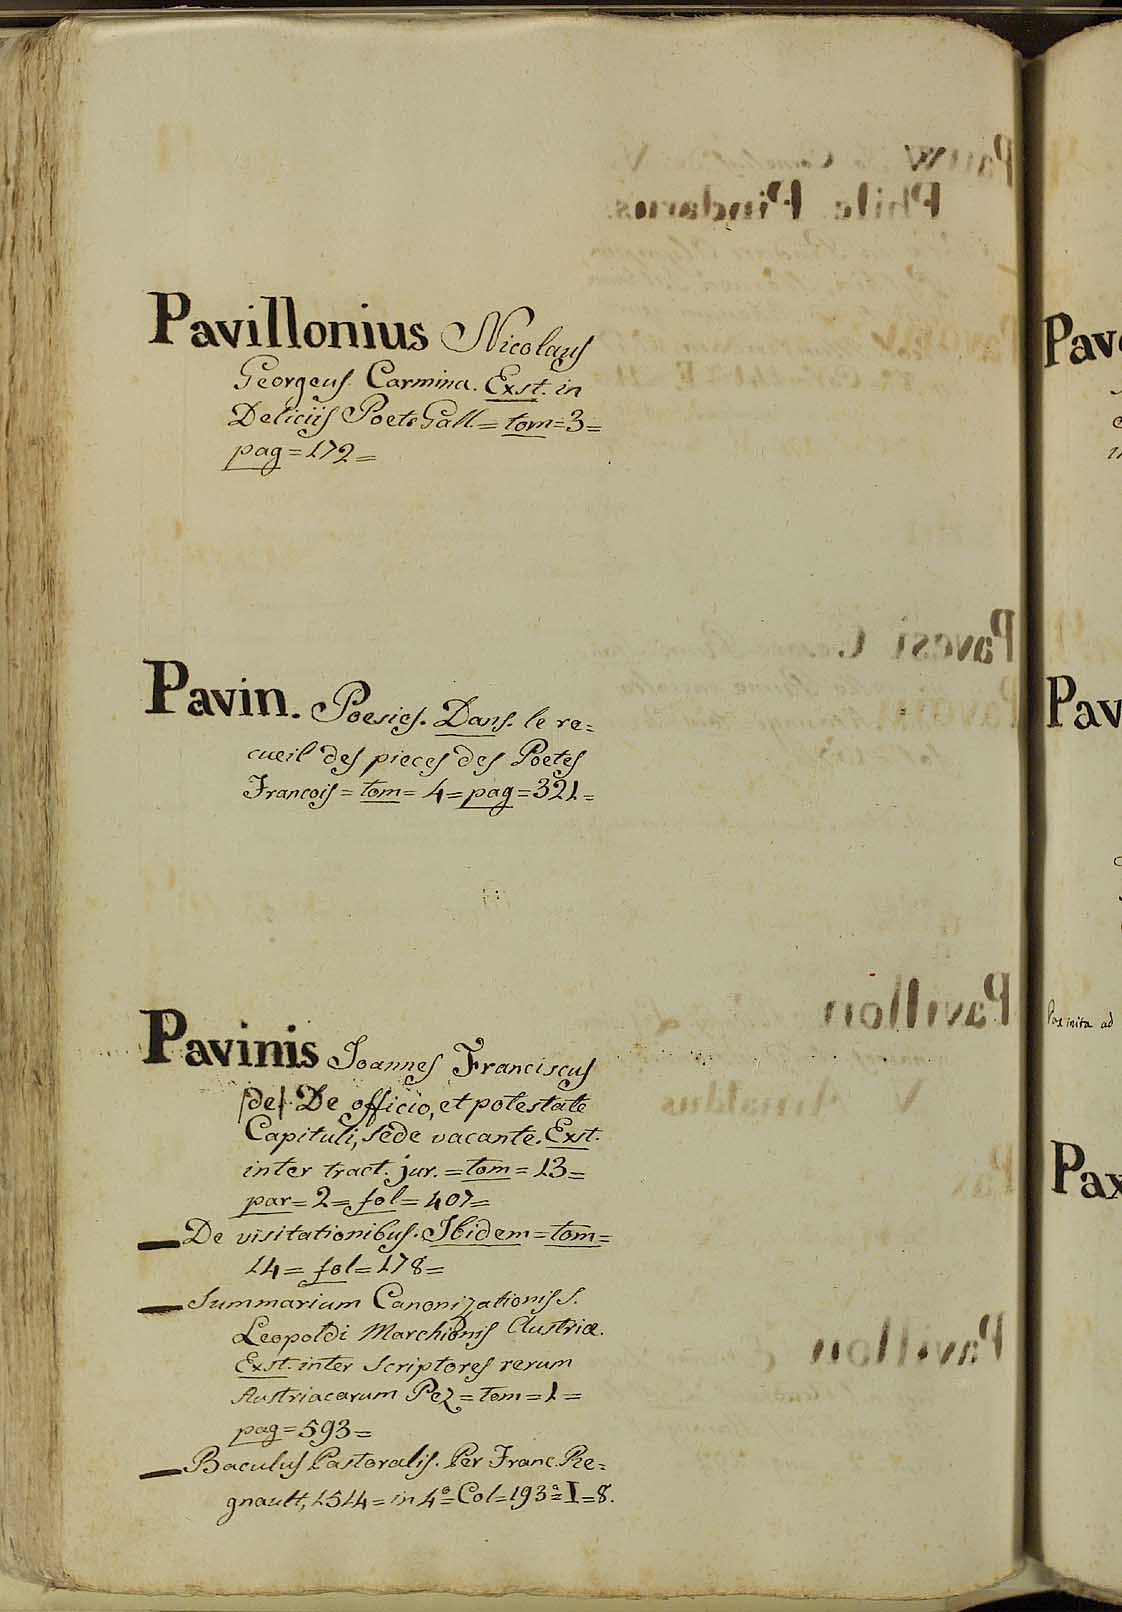 Pavillonius Nicolaus
Georgeus. Carmina. Exst. in
Deliciis Poets Gall.= tom=3=
pag=172=
Pavin. Poesies. Dans. le re=
cueil des pieces des Poetes
Francois= tom= 4= pag=321=
Pavinis Joannes Franciscus
de De officio, et potestate
Capituli, sede vacante. Exst.
inter tract. jur. = tom= 13=
par= 2= fol= 407=
De visitationibus. Ibidem= tom=
14= fol=178=
Summarium Canonizationis S.
Leopoldi Marchionis Austriæ.
Exst. inter Scriptores rerum
Austriacarum Pez= tom= 1=
pag=593=
Baculus Pastoralis. Per Franc. Re=
gnault, 1514= in 4º= Col=193ª= I=8.
Pav
Pav
Pax inita ad
Pax